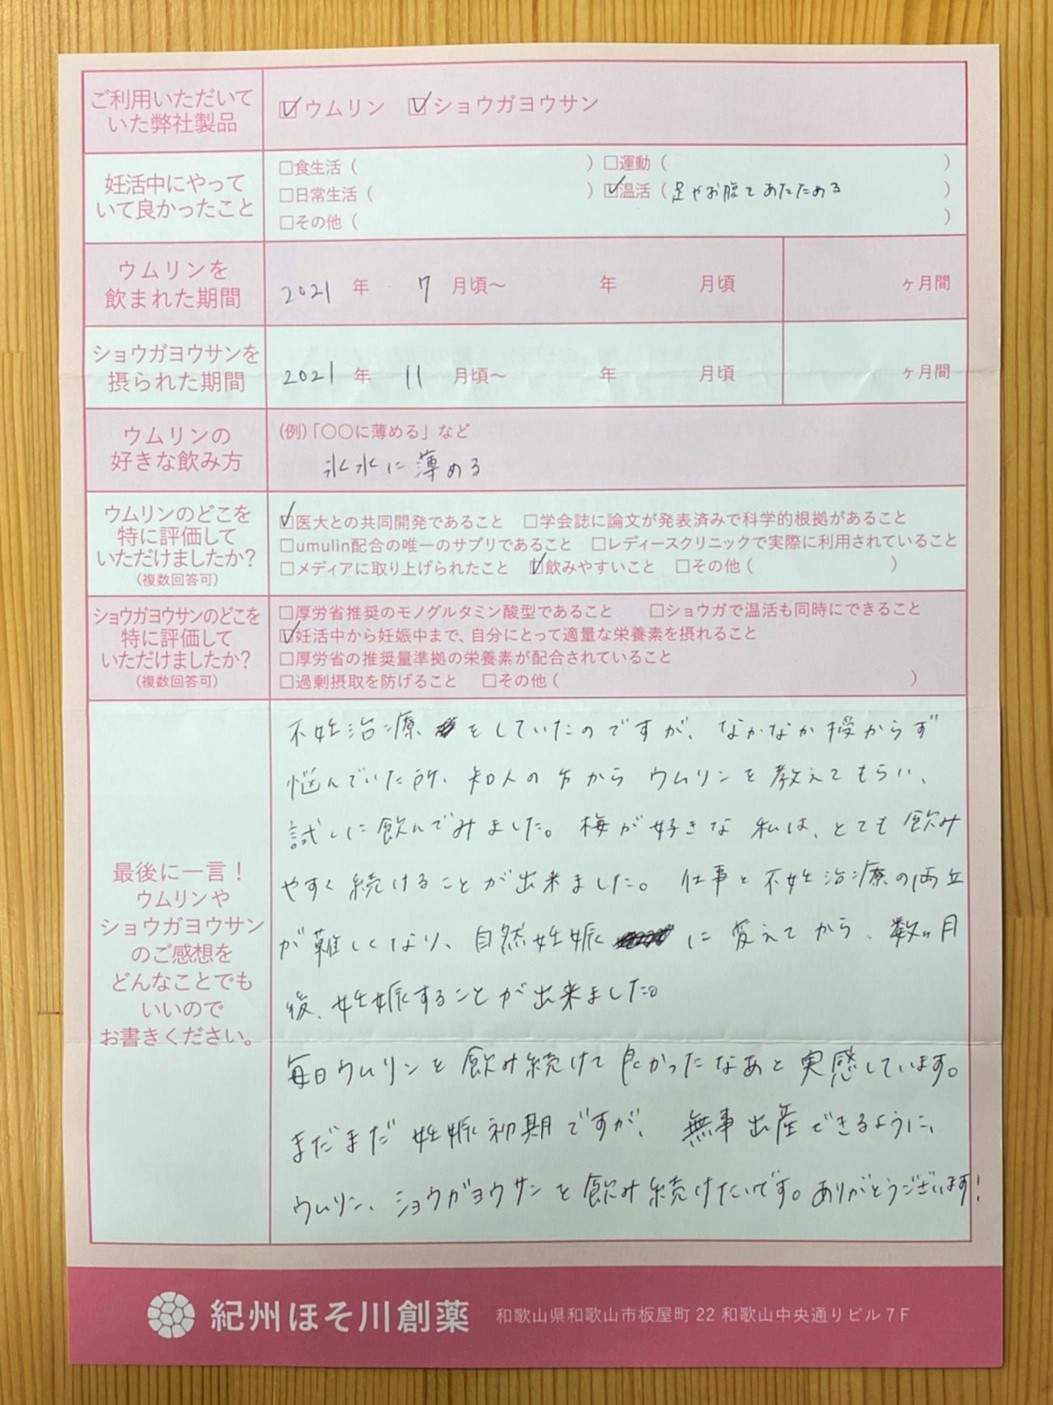 ご利用いただいて
いた弊社製品
☑ウムリン ☑ショウガヨウサン
妊活中にやって
いて良かったこと
□食生活( ) □運動( )
□日常生活( ) ☑温活(足やお腹をあたためる )
□その他( )
ウムリンを
飲まれた期間
2021 年 7 月頃〜 年 月頃 ヶ月間
ショウガヨウサンを
摂られた期間
2021 年 11 月頃〜 年 月頃 ヶ月間
ウムリンの
好きな飲み方
(例)「〇〇に薄める」など
氷水に薄める
ウムリンのどこを
特に評価して
いただけましたか?
(複数回答可)
☑医大との共同開発であること □学会誌に論文が発表済みで科学的根拠があること
□umulin配合の唯一のサプリであること □レディースクリニックで実際に利用されていること
□メディアに取り上げられたこと ☑飲みやすいこと □その他( )
ショウガヨウサンのどこを
特に評価して
いただけましたか?
(複数回答可)
□厚労省推奨のモノグルタミン酸型であること □ショウガで温活も同時にできること
☑妊活中から妊娠中まで、自分にとって適量な栄養素を摂れること
□厚労省の推奨量準拠の栄養素が配合されていること
□過剰摂取を防げること □その他( )
最後に一言!
ウムリンや
ショウガヨウサン
のご感想を
どんなことでも
いいので
お書きください。
不妊治療をしていたのですが、なかなか授からず
悩んでいた所、知人の方からウムリンを教えてもらい、
試しに飲んでみました。梅が好きな私は、とても飲み
やすく続けることが出来ました。仕事と不妊治療の両立
が難しくなり、自然妊娠に変えてから、数ヶ月
後、妊娠することが出来ました。
毎日ウムリンを飲み続けて良かったなあと実感しています。
まだまだ妊娠初期ですが、無事出産できるように、
ウムリン、ショウガヨウサンを飲み続けたいです。ありがとうございます!
紀州ほそ川創薬 和歌山県和歌山市板屋町 22 和歌山中央通りビル 7 F